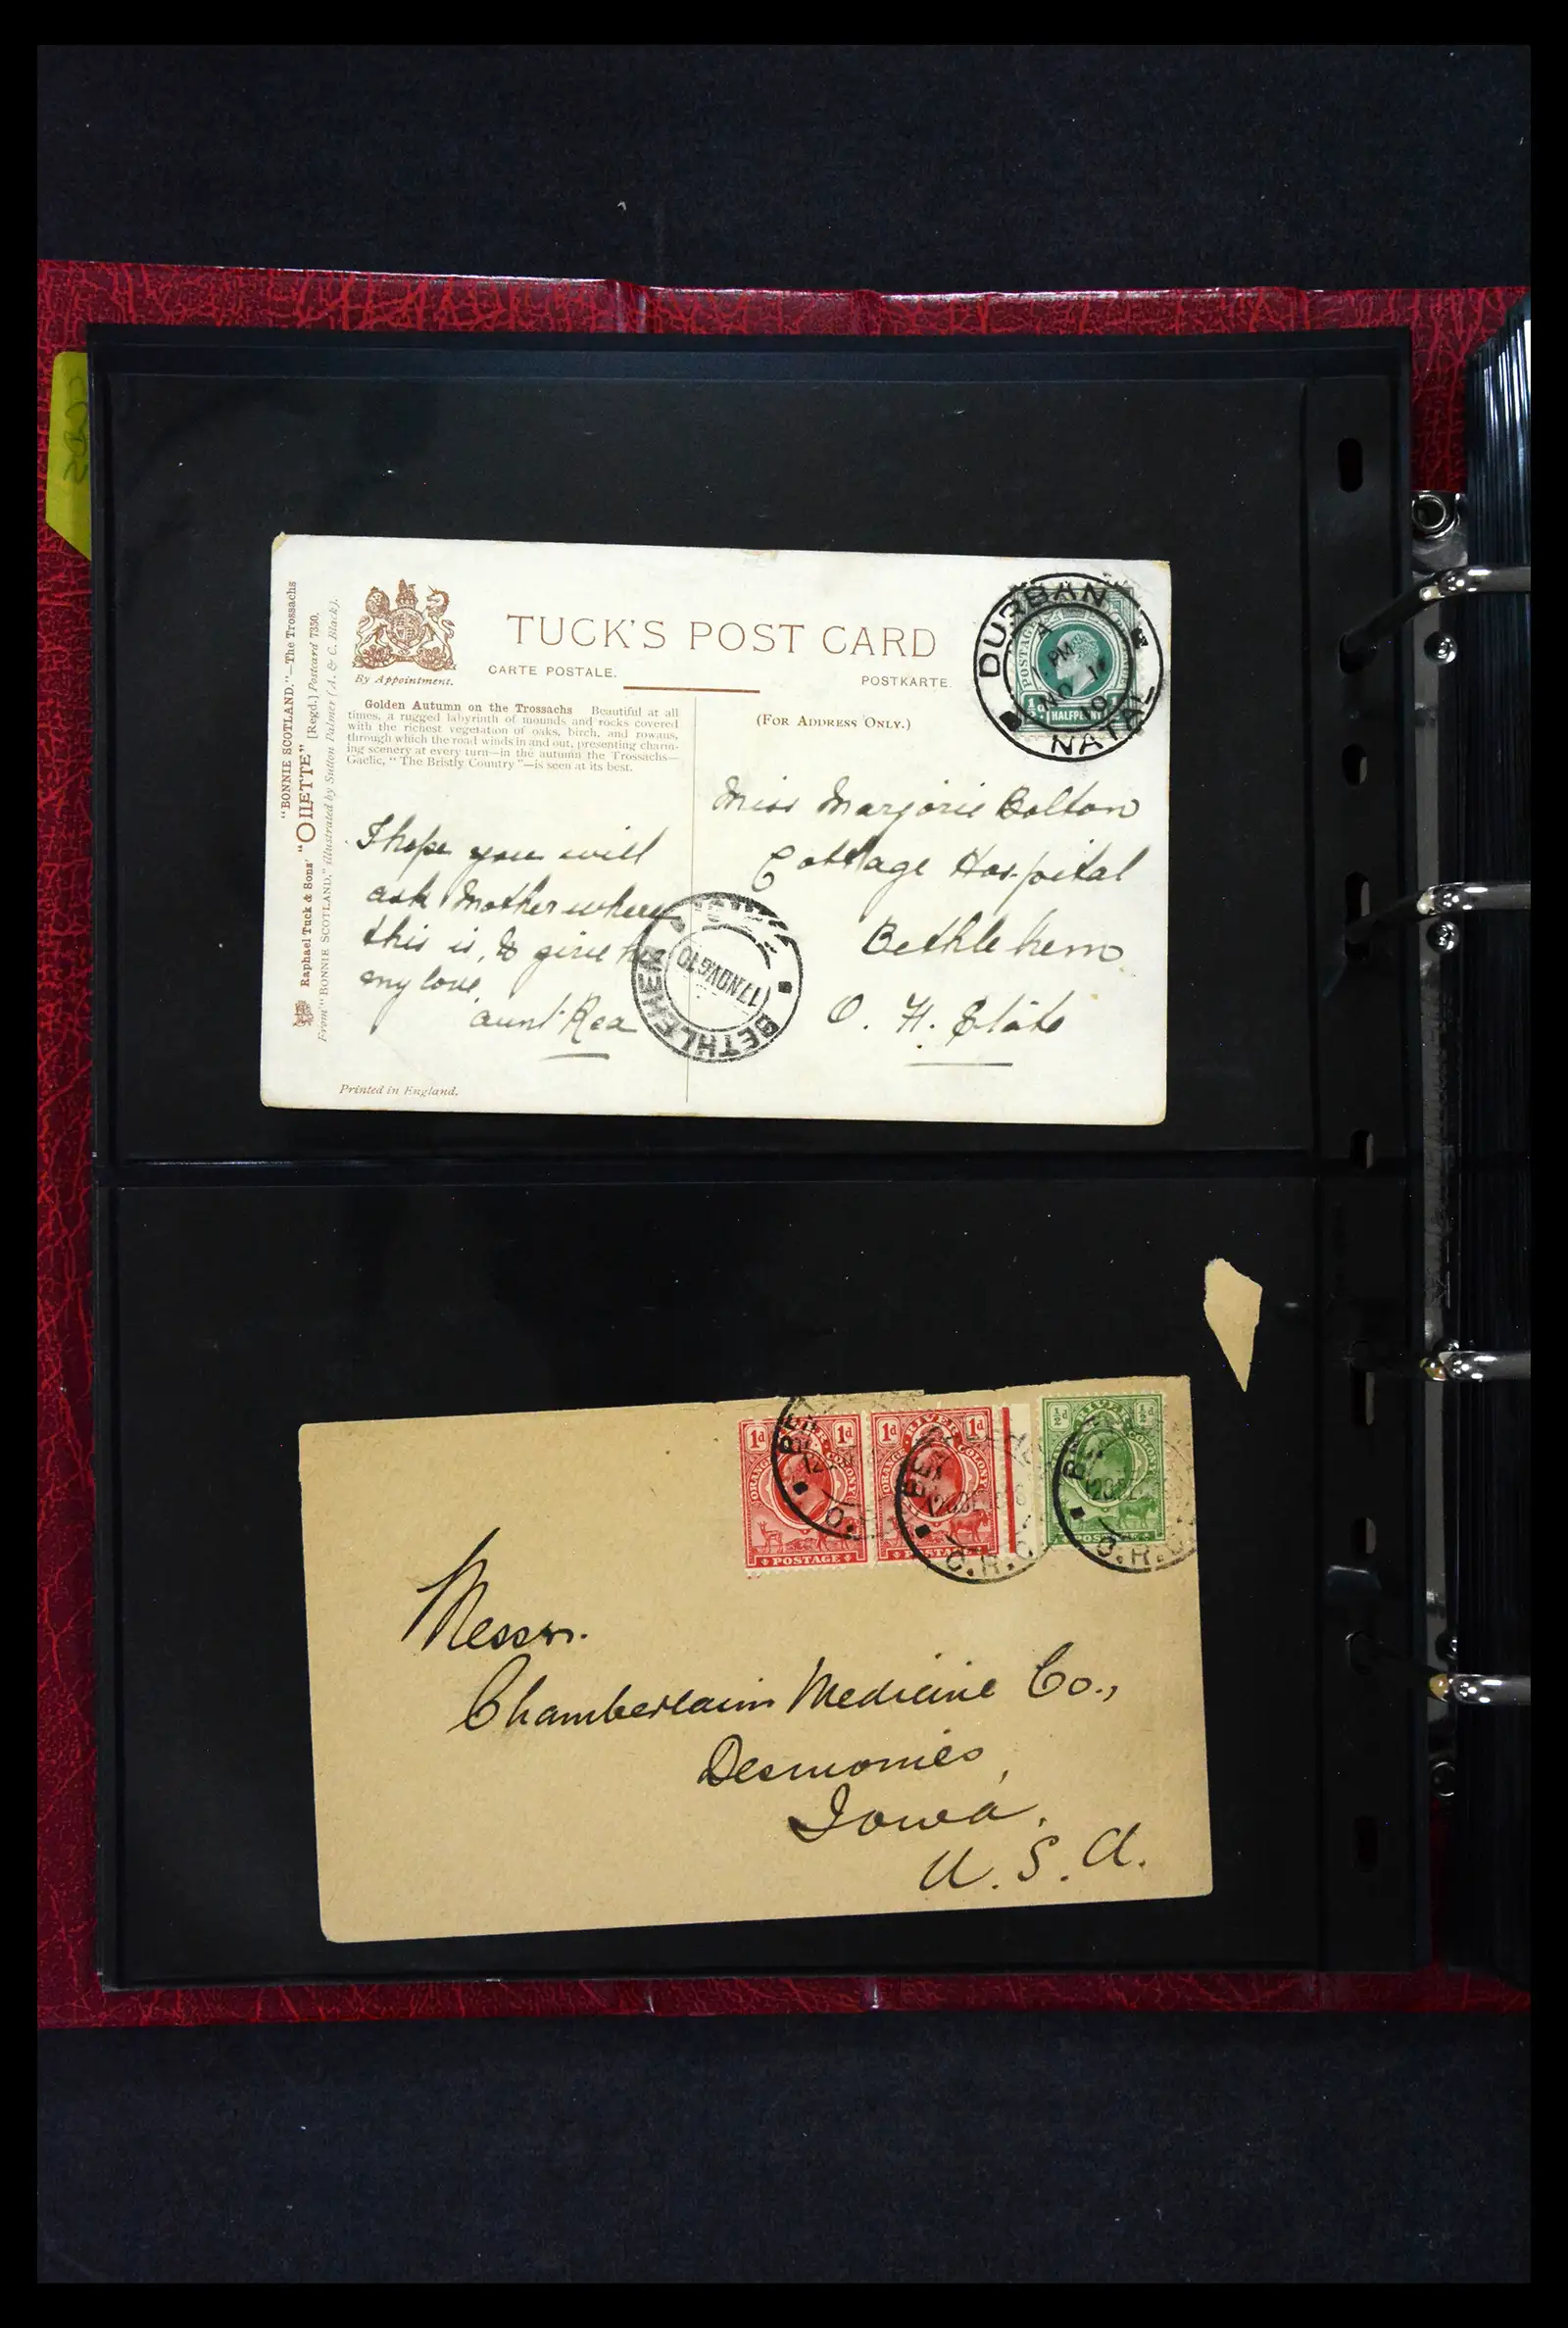 "BONNIE SCOTLAND."—The Trossachs
Raphael Tuck & Sons' "OILETTE" [Regd.] Postcard 7350.
From "BONNIE SCOTLAND," illustrated by Sutton Palmer (A. & C. Black).
By Appointment.
TUCK'S POST CARD
CARTE POSTALE.
POSTKARTE
Golden Autumn on the Trossachs Beautiful at all
times, a rugged labyrinth of mounds and rocks covered
with the richest vegetation of oaks, birch, and rowans,
through which the road winds in and out, presenting charm-
ing scenery at every turn—in the autumn the Trossachs—
Gaelic, "The Bristly Country"—is seen at its best.
(FOR ADDRESS ONLY.)
DURBAN
PM
NO 1
NATAL
POSTAGE
½d HALFPENNY
I hope you will
ask Mother where
this is, & give her
my love.
aunt Rea
Miss Marjorie Bolton
Cottage Hospital
Bethlehem
O. H. State
BETHLEHEM
17NOV610
BETHLEHEM
Printed in England.
1d 1d
ORANGE RIVER COLONY
POSTAGE
1d 1d
ORANGE RIVER COLONY
POSTAGE
½d ½d
RIVER COLONY
POSTAGE
O.R.C.
O.R.C.
Messrs.
Chamberlain Medicine Co.,
Desmonies,
Iowa.
U.S.A.